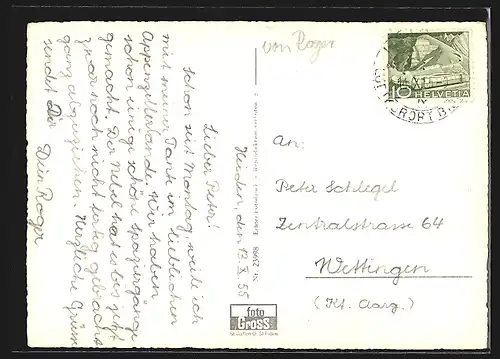 Heiden, den 13. X. 55
Lieber Peter!
Schon seit Montag, weile ich
mit meiner Tante im lieblichen
Appenzellerlande. Wir haben
schon einige schöne Spaziergänge
gemacht. Der Nebel hat es bis jetzt
zwar noch nicht fertig gebracht
ganz abzuziehen. Herzliche Grüsse
sendet Dir
Dein Roger
von Roger
Nr. 23698
foto
Gross
HELVETIA
10
An:
Peter Schlegel
Zentralstrasse 64
Wettingen
(Kt. Aarg.)